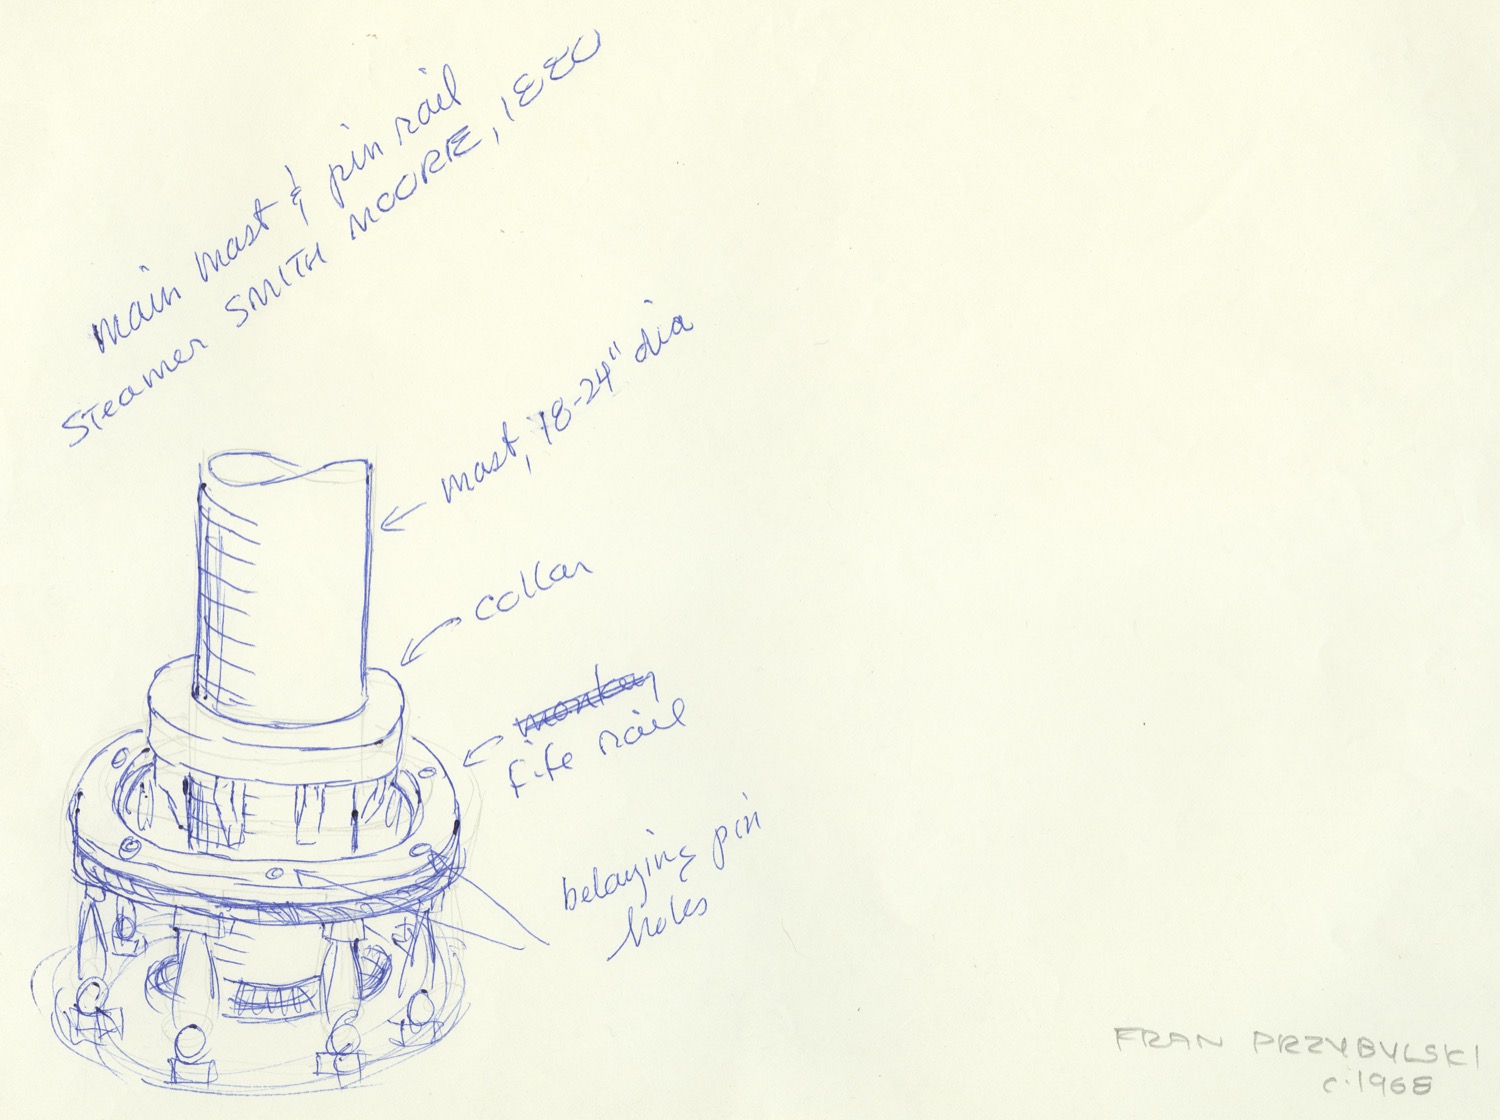 main mast & pin rail
Steamer SMITH MOORE, 1880
mast, 18-24" dia
collar
monkey
fife rail
belaying pin
holes
FRAN PRZYBYLSKI
c. 1968